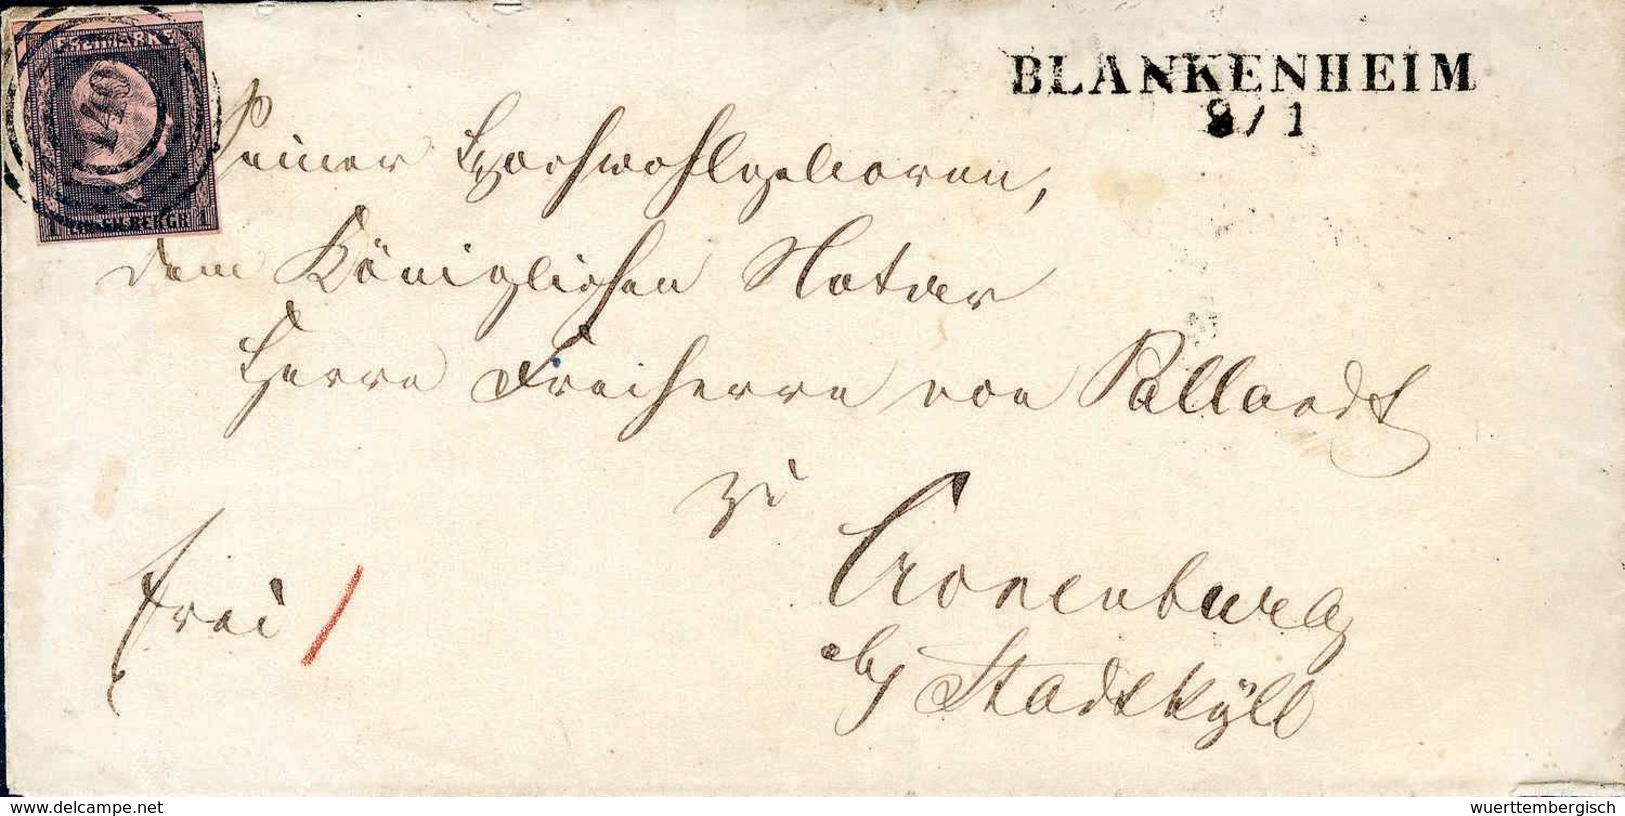 FREIMARKE
140
1 EIN SILBERGR. 1
BLANKENHEIM
9/1
Seiner Hochwohlgeboren,
dem Königlichen Notar
Herrn Freiherrn von Pallandt
zu
Cronenburg
by Stadtkyll
frei
www.delcampe.net
wuerttembergisch